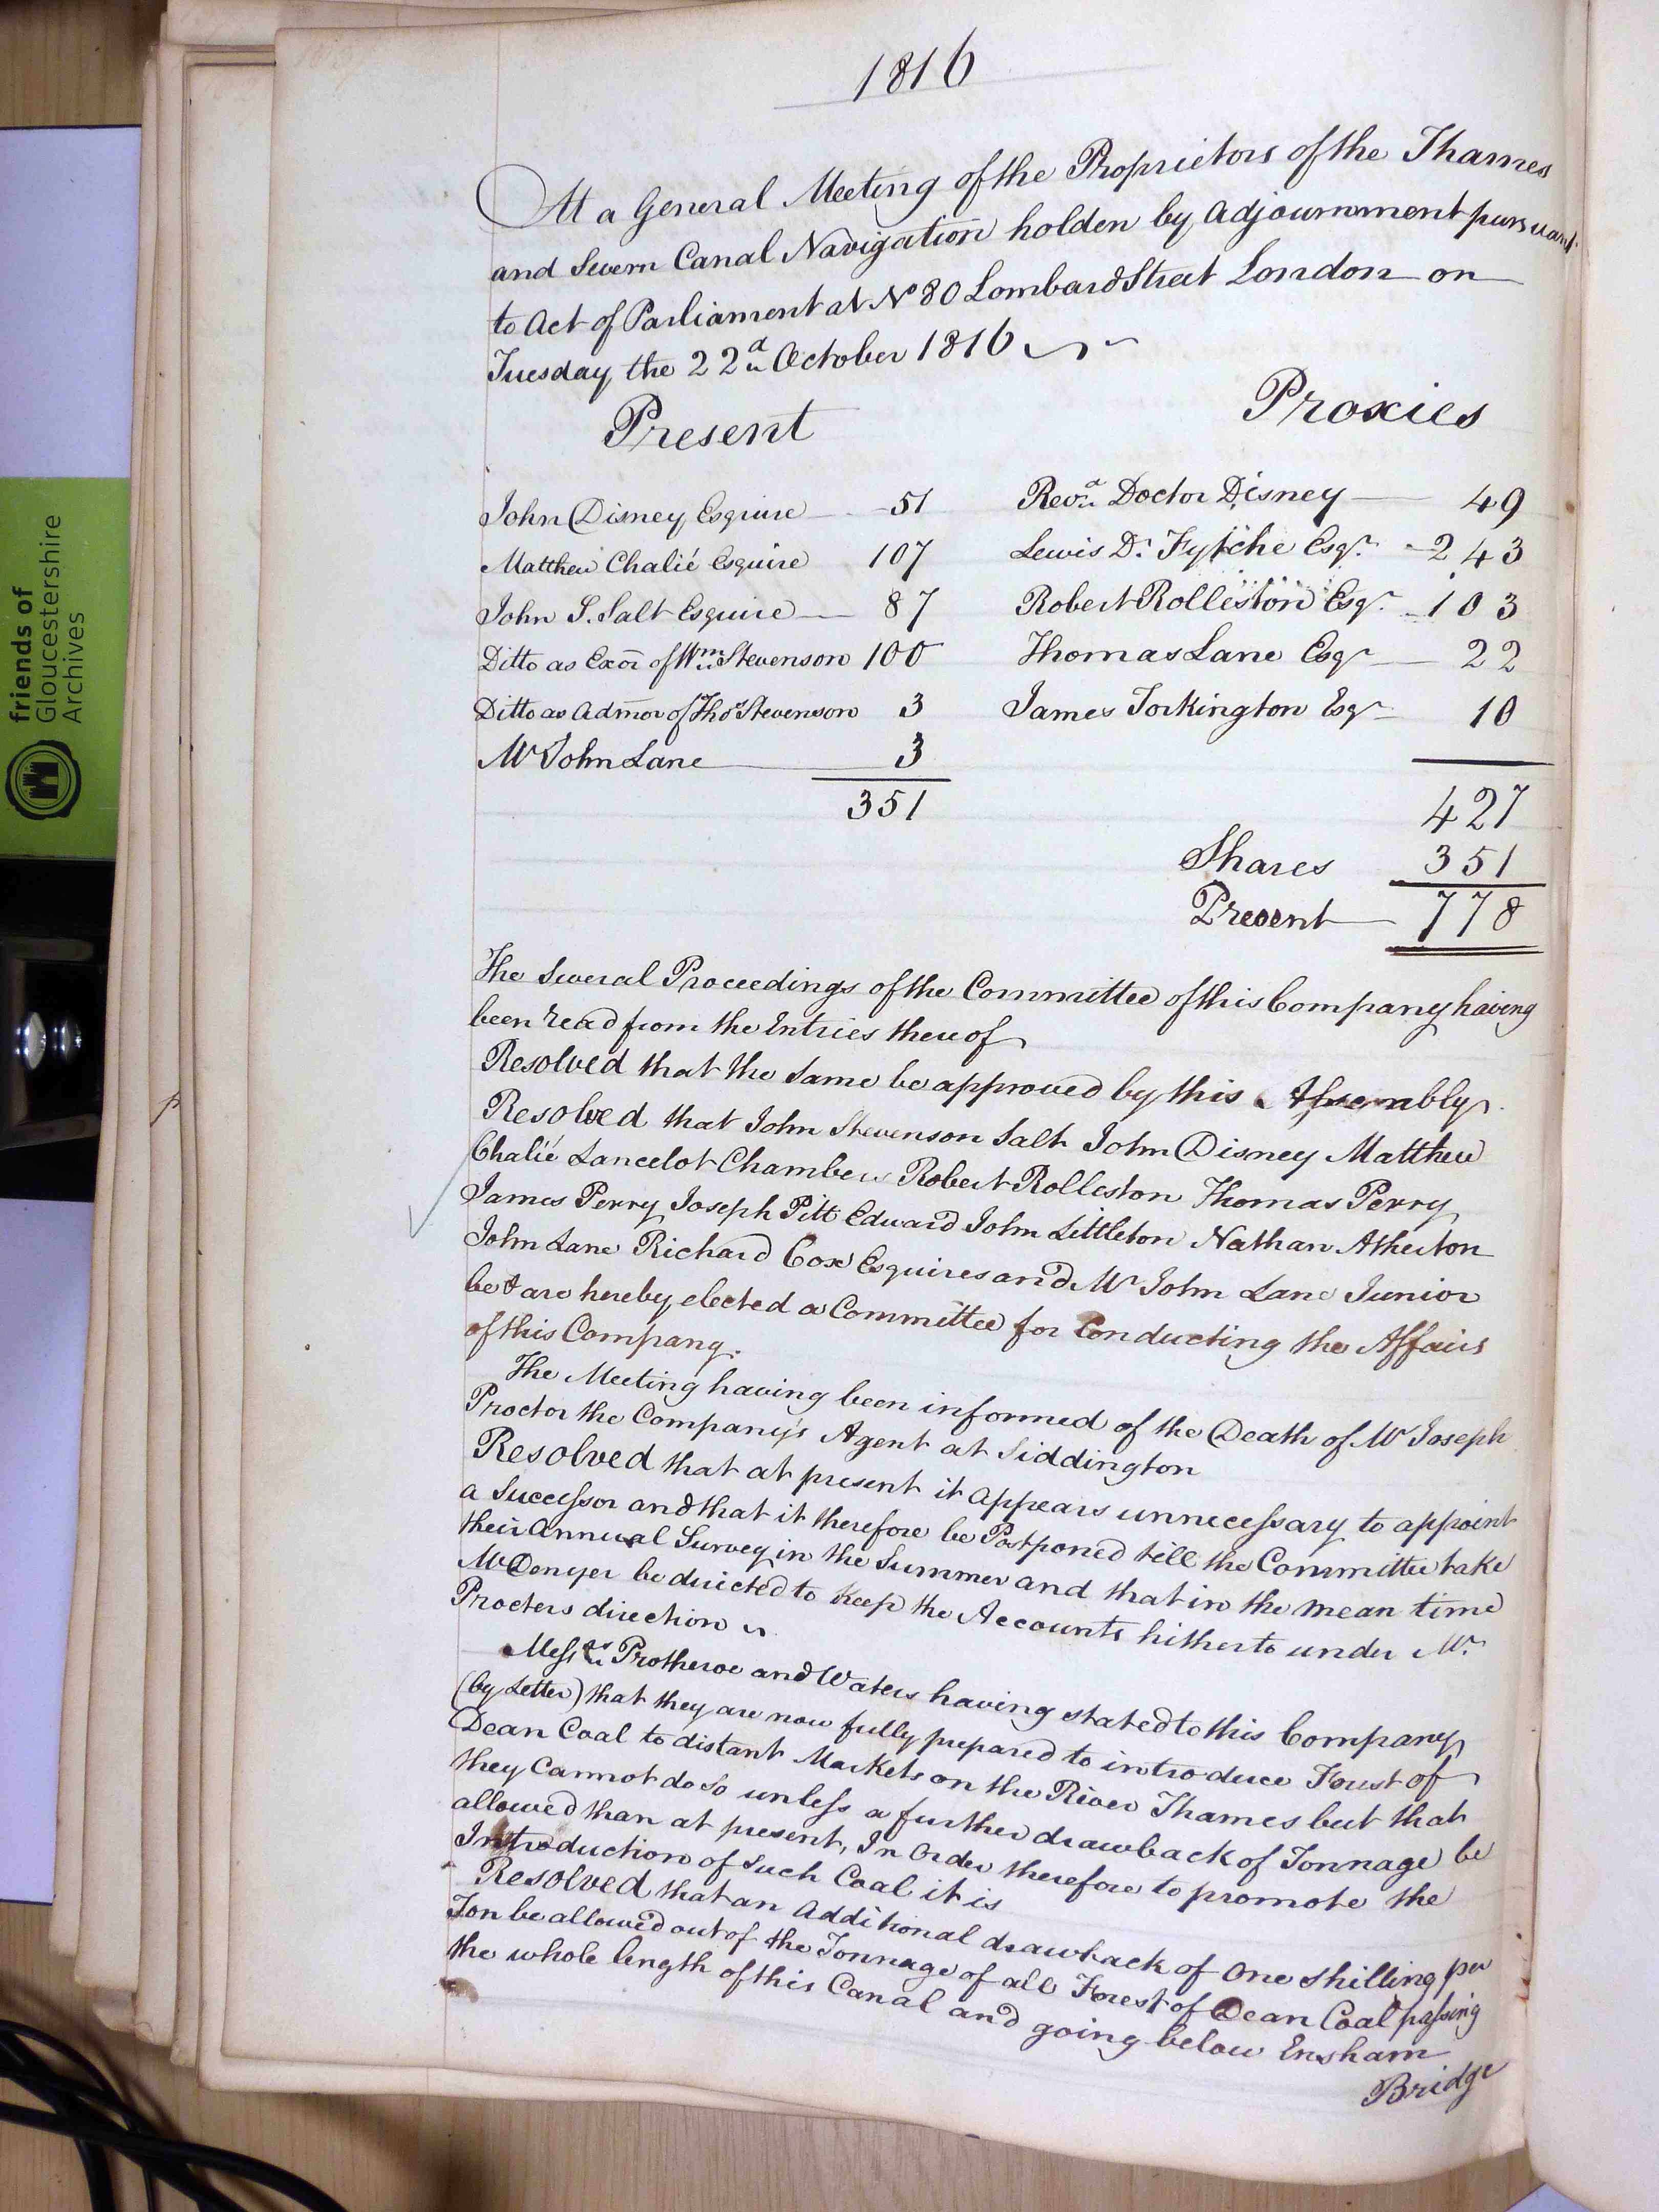 1816
At a General Meeting of the Proprietors of the Thames
and Severn Canal Navigation holden by Adjournment pursuant
to Act of Parliament at No 80 Lombard Street London on
Tuesday the 22d October 1816
Present
Proxies
John Disney Esquire 51
Matthew Chalié Esquire 107
John S. Salt Esquire 87
Ditto as Exor of Wm Stevenson 100
Ditto as Admor of Thos Stevenson 3
Mr John Lane 3
351
Revd Doctor Disney 49
Lewis D. Fytche Esqr 243
Robert Rolleston Esqr 103
Thomas Lane Esqr 22
James Torkington Esqr 10
427
Shares 351
Present 778
The several Proceedings of the Committee of this Company having
been read from the Entries thereof
Resolved that the same be approved by this Assembly
Resolved that John Stevenson Salt John Disney Matthew
Chalié Lancelot Chambers Robert Rolleston Thomas Perry
James Perry Joseph Pitt Edward John Littleton Nathan Atherton
John Lane Richard Cox Esquires and Mr John Lane Junior
be & are hereby elected a Committee for Conducting the Affairs
of this Company.
The Meeting having been informed of the Death of Mr Joseph
Proctor the Company's Agent at Siddington
Resolved that at present it appears unnecessary to appoint
a Successor and that it therefore be Postponed till the Committee take
their Annual Survey in the Summer and that in the mean time
Mr Denyer be directed to keep the Accounts hitherto under Mr
Procters direction
Messrs Protheroe and Waters having stated to this Company
(by Letter) that they are now fully prepared to introduce Forest of
Dean Coal to distant Markets on the River Thames but that
they Cannot do so unless a further drawback of Tonnage be
allowed than at present, In Order therefore to promote the
Introduction of Such Coal it is
Resolved that an Additional drawback of One Shilling per
Ton be allowed out of the Tonnage of all Forest of Dean Coal passing
the whole length of this Canal and going below Ensham
Bridge
friends of
Gloucestershire
Archives